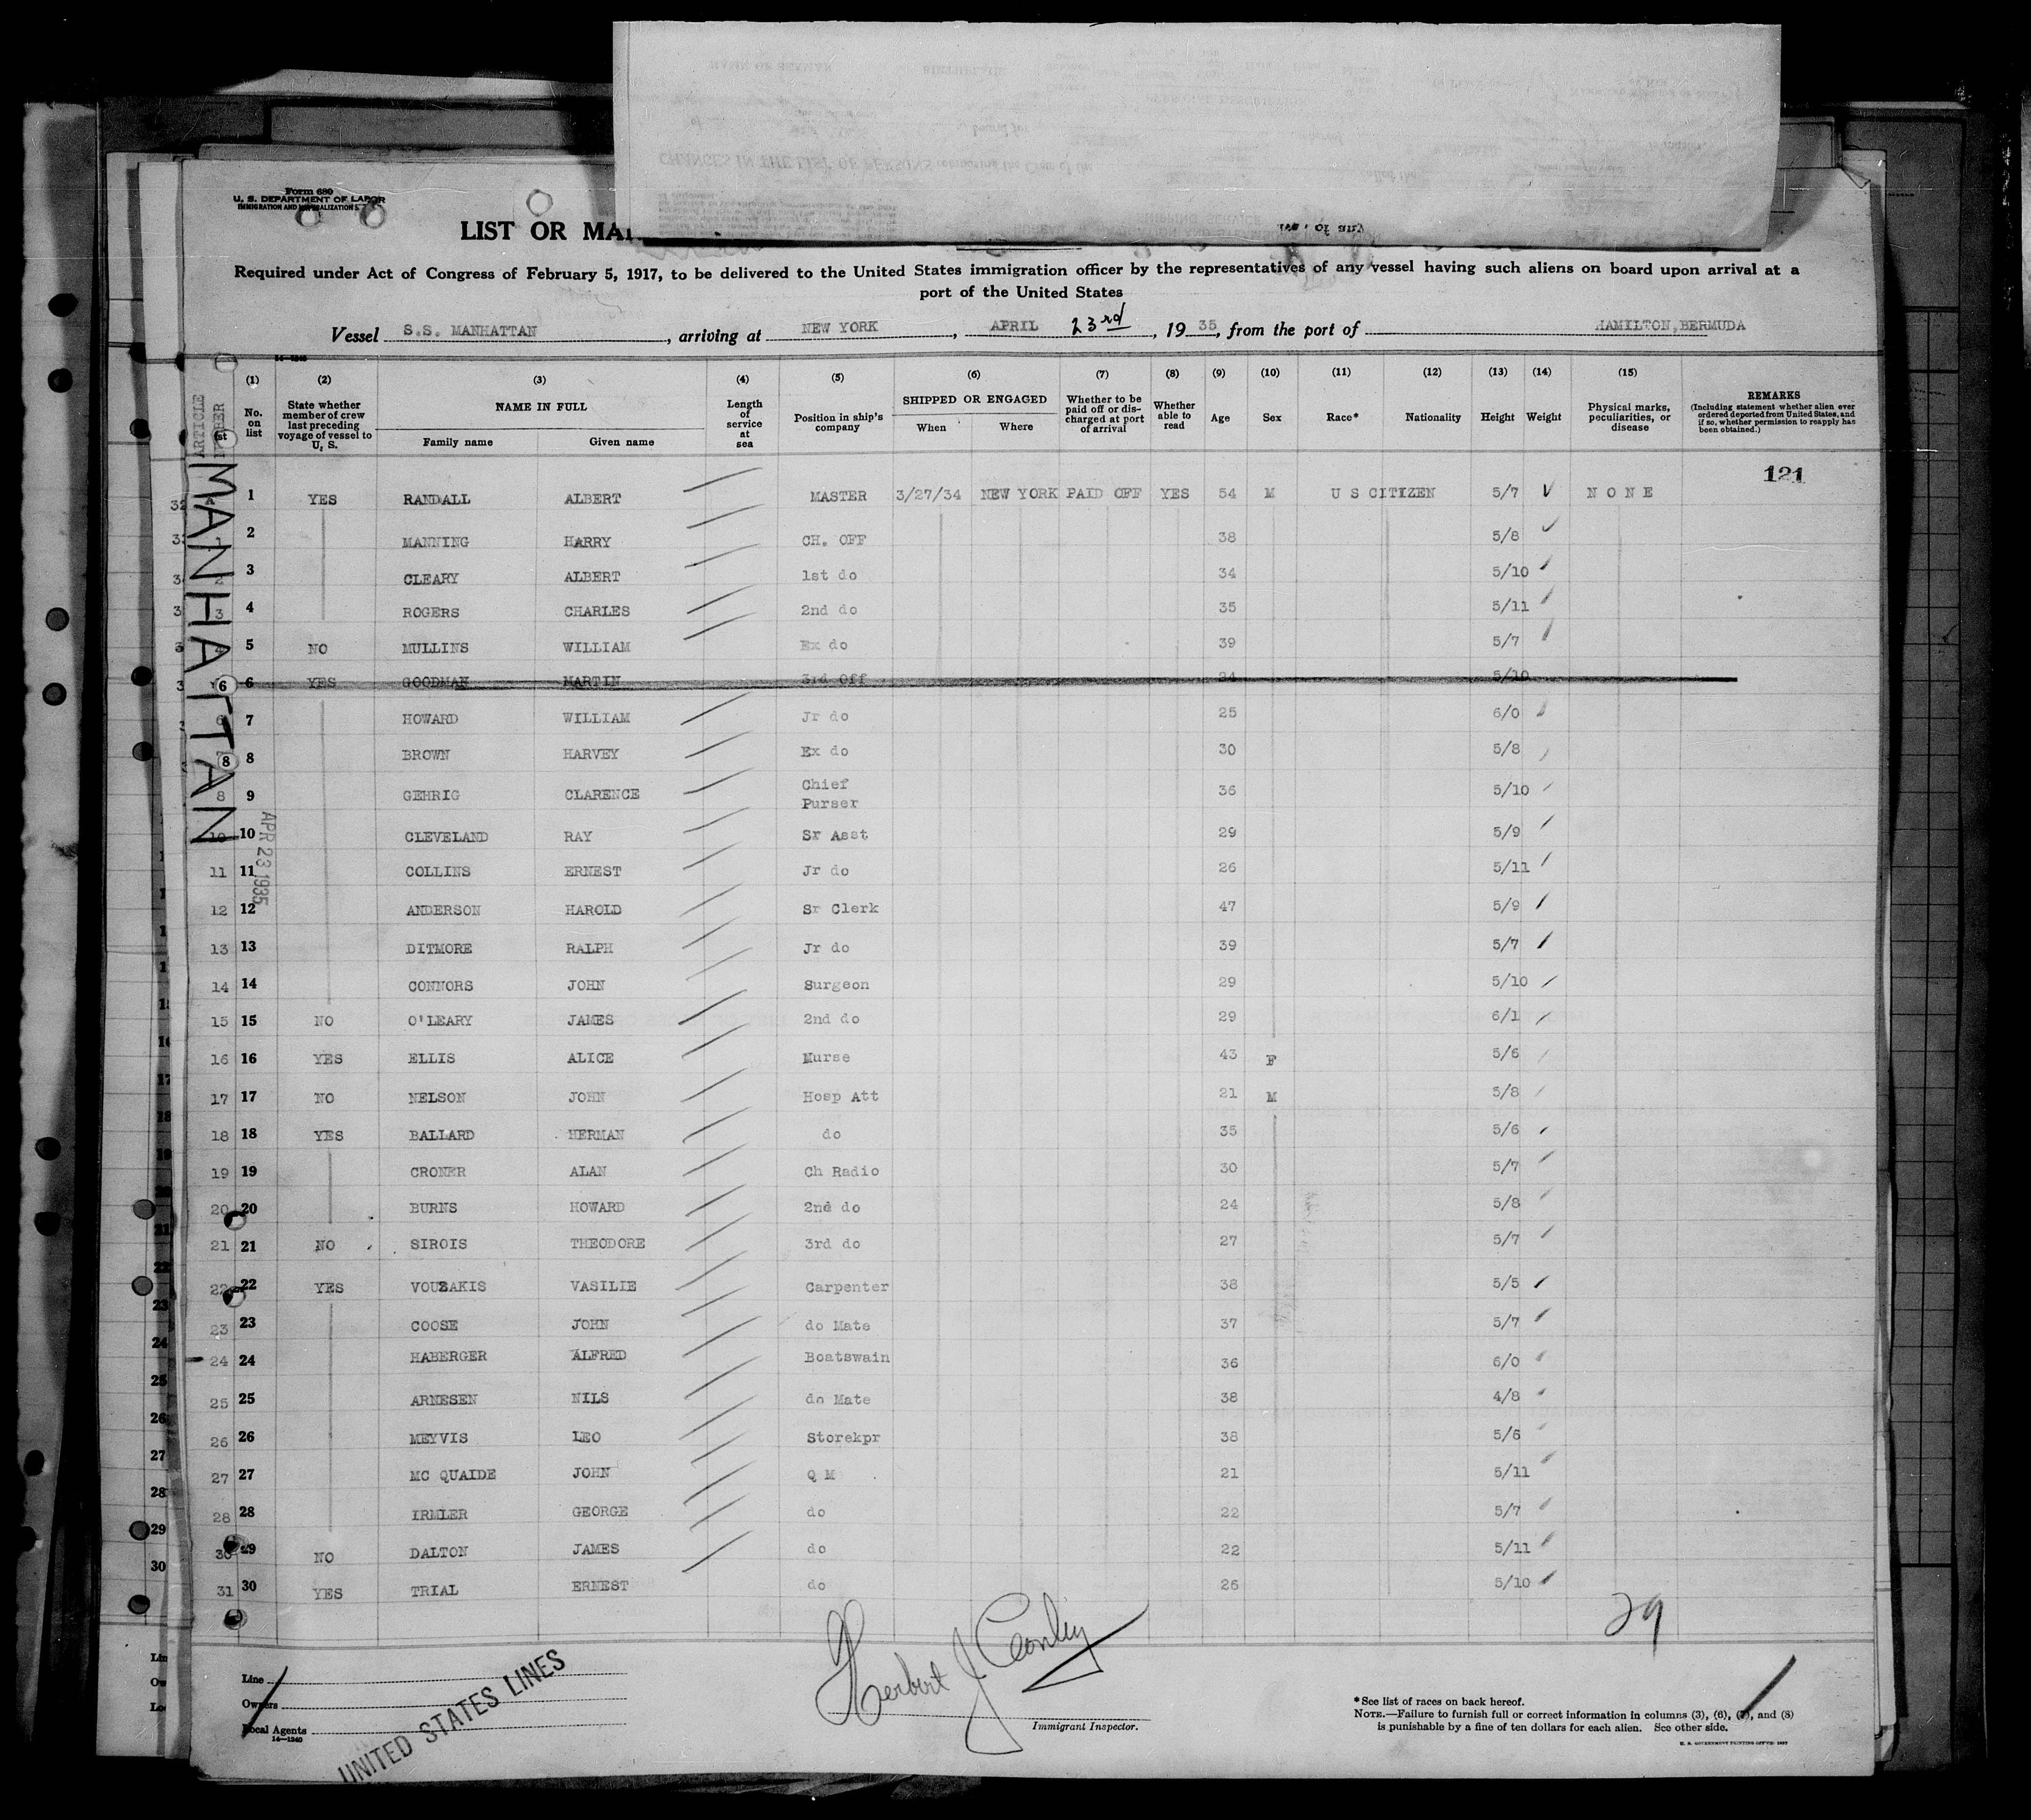 Form 680
U. S. DEPARTMENT OF LABOR
LIST OR
Required under Act of Congress of February 5, 1917, to be delivered to the United States immigration officer by the representatives of any vessel having such aliens on board upon arrival at a
port of the United States
Vessel S.S. MANHATTAN, arriving at NEW YORK, APRIL 23rd, 1935, from the port of HAMILTON, BERMUDA
(1) (2) (3) (4) (5) (6) (7) (8) (9) (10) (11) (12) (13) (14) (15)
No. on list State whether member of crew last preceding voyage of vessel to U. S. NAME IN FULL Family name Given name Length of service at sea Position in ship's company SHIPPED OR ENGAGED When Where Whether to be paid off or discharged at port of arrival Whether able to read Age Sex Race* Nationality Height Weight Physical marks, peculiarities, or disease REMARKS (Including statement whether alien ever ordered deported from United States, and if so, whether permission to reapply has been obtained.)
121
MANHATTAN
APR 23 1935
1 YES RANDALL ALBERT MASTER 3/27/34 NEW YORK PAID OFF YES 54 M U S CITIZEN 5/7 NONE
2 MANNING HARRY CH. OFF 38 5/8
3 CLEARY ALBERT 1st do 34 5/10
4 ROGERS CHARLES 2nd do 35 5/11
5 NO MULLINS WILLIAM Ex do 39 5/7
6 6 YES GOODMAN MARTIN 3rd Off 24 5/10
7 HOWARD WILLIAM Jr do 25 6/0
8 8 BROWN HARVEY Ex do 30 5/8
8 9 GEHRIG CLARENCE Chief Purser 36 5/10
10 10 CLEVELAND RAY Sr Asst 29 5/9
11 11 COLLINS ERNEST Jr do 26 5/11
12 12 ANDERSON HAROLD Sr Clerk 47 5/9
13 13 DITMORE RALPH Jr do 39 5/7
14 14 CONNORS JOHN Surgeon 29 5/10
15 15 NO O'LEARY JAMES 2nd do 29 6/1
16 16 YES ELLIS ALICE Murse 43 F 5/6
17 17 NO NELSON JOHN Hosp Att 21 M 5/8
18 18 YES BALLARD HERMAN do 35 5/6
19 19 CRONER ALAN Ch Radio 30 5/7
20 20 BURNS HOWARD 2nd do 24 5/8
21 21 NO SIROIS THEODORE 3rd do 27 5/7
22 22 YES VOUZAKIS VASILIE Carpenter 38 5/5
23 23 COOSE JOHN do Mate 37 5/7
24 24 HABERGER ALFRED Boatswain 36 6/0
25 25 ARNESEN NILS do Mate 38 4/8
26 26 MEYVIS LEO Storekpr 38 5/6
27 27 MC QUAIDE JOHN Q M 21 5/11
28 28 IRMLER GEORGE do 22 5/7
30 29 NO DALTON JAMES do 22 5/11
31 30 YES TRIAL ERNEST do 26 5/10
29
Line
Owners
Local Agents
14—1240
UNITED STATES LINES
Herbert J Conley
Immigrant Inspector.
*See list of races on back hereof.
NOTE.—Failure to furnish full or correct information in columns (3), (6), (7), and (8)
is punishable by a fine of ten dollars for each alien. See other side.